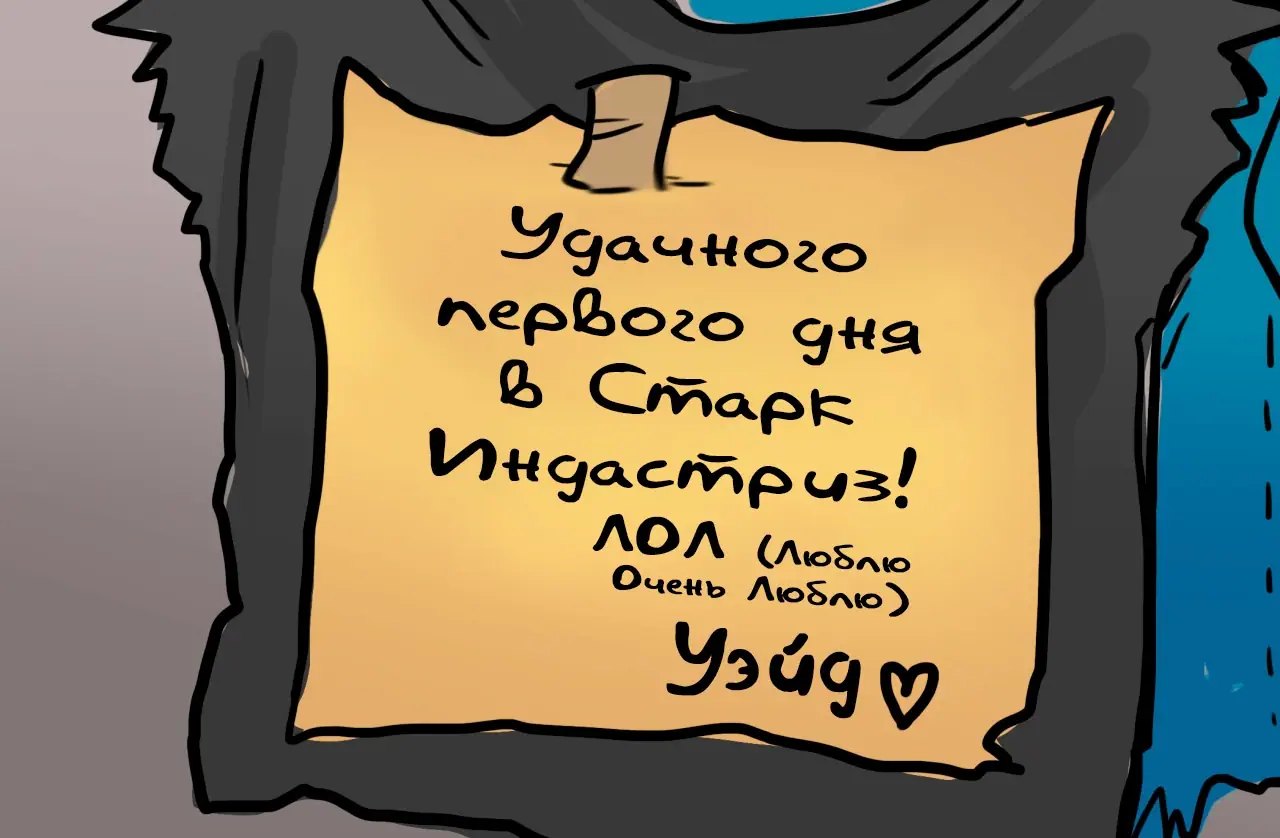 Удачного
первого дня
в Старк
Индастриз!
ЛОЛ (Люблю
Очень Люблю)
Уэйд♡